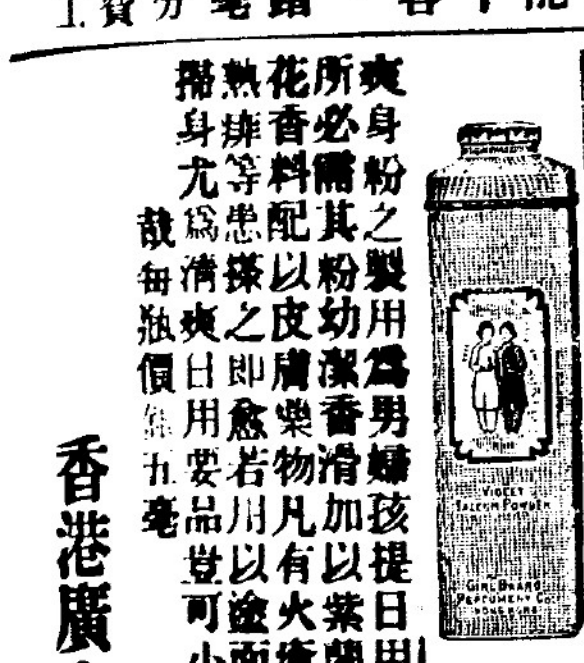 爽身粉之製用為男婦孩提日用
所必需其粉幼潔香滑加以紫蘭
花香料配以皮膚樂物凡有火瘡
熱痱等患搽之即愈若用以塗面
搨身尤為清爽日用要品豈可小
哉每瓶價銀五毫
香港廣
VIOLET
TALCUM POWDER
GIRL BRAND
PERFUMERY Co.
HONG KONG